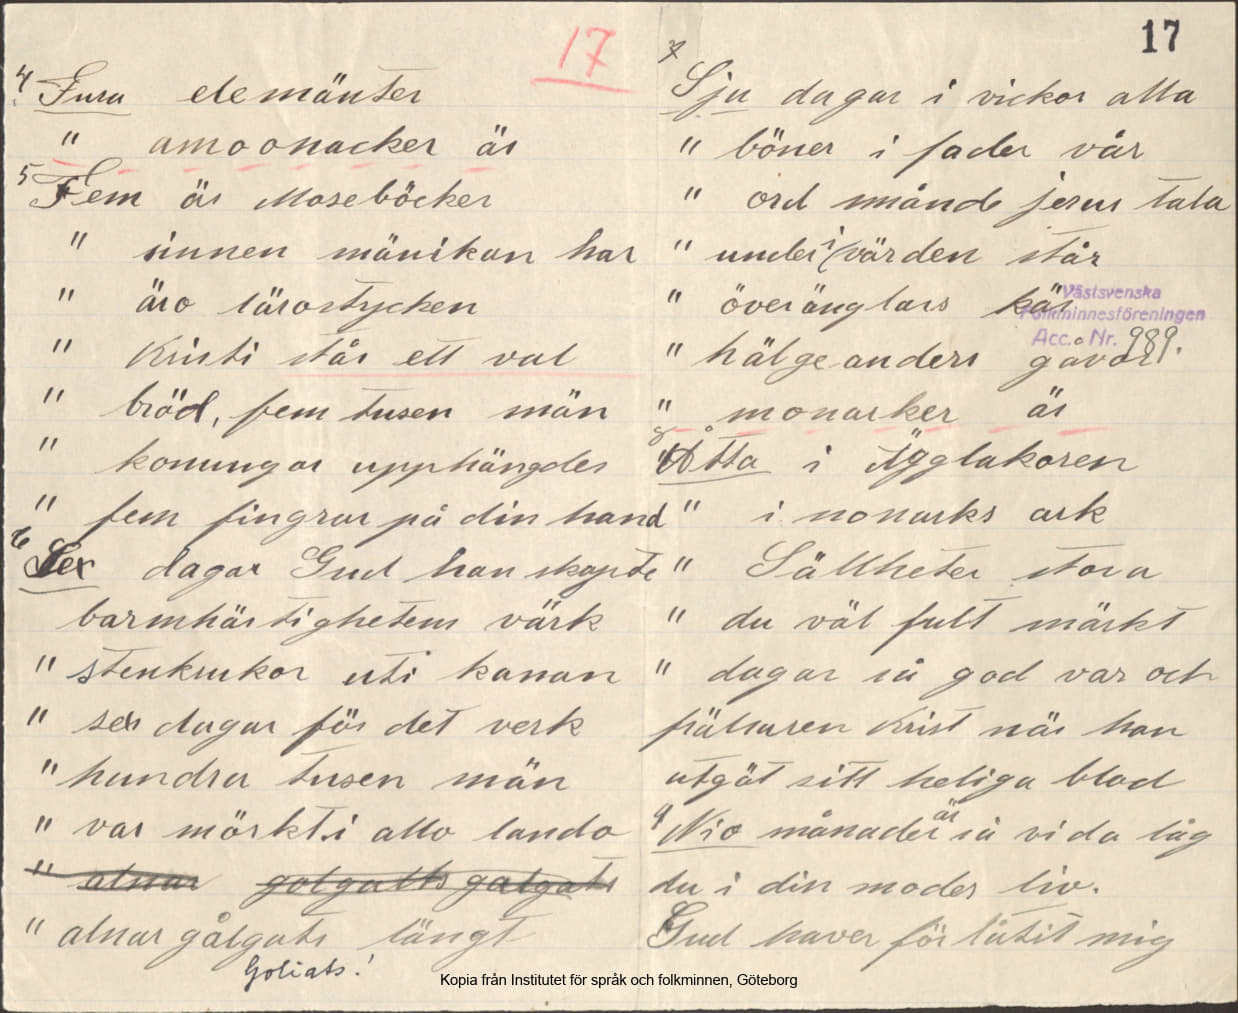 17
4 Fura elemänter
" amoonacker är
5 Fem är Moseböcker
" sinnen mänikan har
" äro lärostycken
" Kristi står ett val
" bröd, fem tusen män
" konungar upphängdes
" fem fingrar på din hand
6 Sex dagar Gud han skapte
barmhärtighetens värk
" stenkrukor uti kanan
" sex dagar för det verk
" hundra tusen män
" var mörkt i allo lando
" alnar golgatts galgats
" alnar gålgats längt
Goliats!
17
7 Sju dagar i vickor alla
" böner i fader vår
" ord månde jesus tala
" under i värden står
" överänglars kär
" hälge anders gavor
" monarker är
8 Åtta i Ägglakoren
" i nonarks ark
" Sällheter stora
" du väl fult märkt
" dagar så god var och
frälsaren Krist när han
utgöt sitt heliga blod
9 Nio månader är så vida låg
du i din moders liv.
Gud haver förlåtit mig
Västsvenska
Folkminnesföreningen
Acc. Nr. 989.
Kopia från Institutet för språk och folkminnen, Göteborg